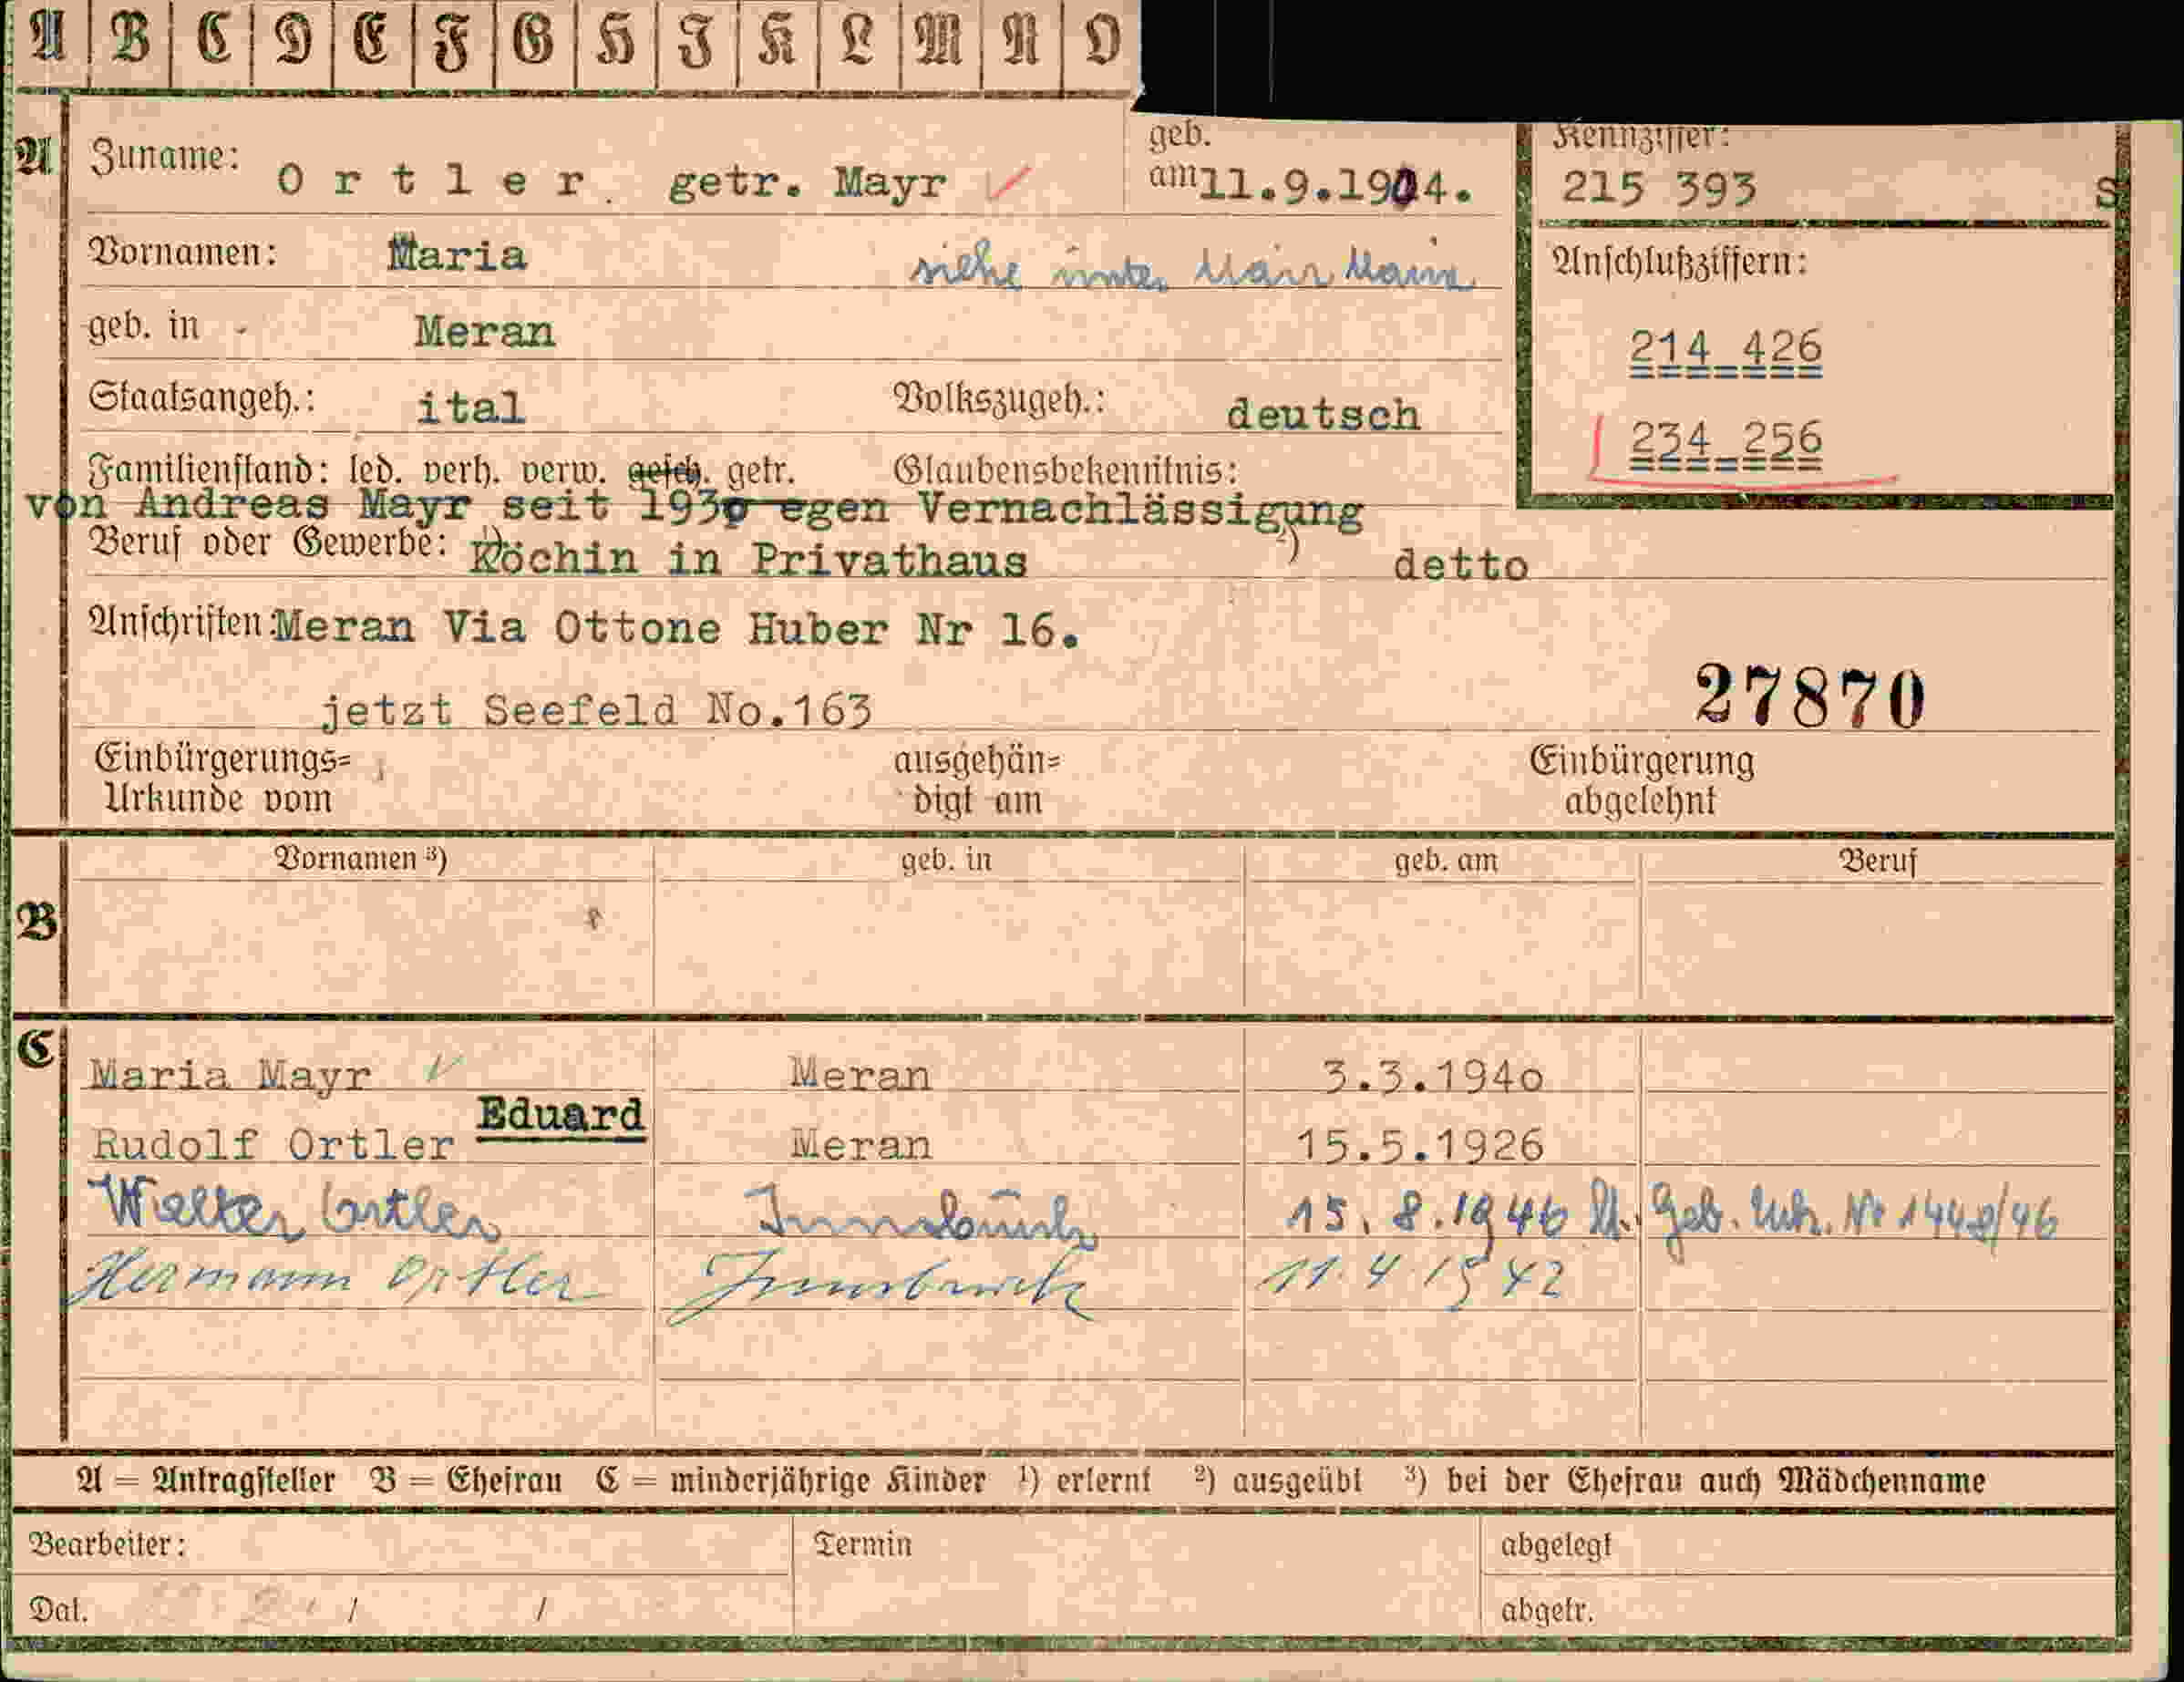 A B C D E F G H J K L M N O
A Zuname: O r t l e r getr. Mayr geb. am 11.9.1904. Kennziffer: 215 393 S
Vornamen: Maria siehe unter Mair Maria Anschlußziffern:
geb. in Meran 214 426
Staatsangeh.: ital Volkszugeh.: deutsch 234 256
Familienstand: led. verh. verw. gesch. getr. Glaubensbekenntnis:
von Andreas Mayr seit 1930 egen Vernachlässigung
Beruf oder Gewerbe: ¹) Köchin in Privathaus ²) detto
Anschriften: Meran Via Ottone Huber Nr 16.
jetzt Seefeld No.163 27870
Einbürgerungs= ausgehän= Einbürgerung
Urkunde vom digt am abgelehnt
Vornamen ³) geb. in geb. am Beruf
B
C
Maria Mayr Meran 3.3.1940
Eduard
Rudolf Ortler Meran 15.5.1926
Walter Ortler Innsbruck 15. 8. 1946 lt. Geb. Urk. Nr 1448/46
Hermann Ortler Innsbruck 11.4.1942
A = Antragsteller B = Ehefrau C = minderjährige Kinder ¹) erlernt ²) ausgeübt ³) bei der Ehefrau auch Mädchenname
Bearbeiter: Termin abgelegt
Dat. / / abgetr.